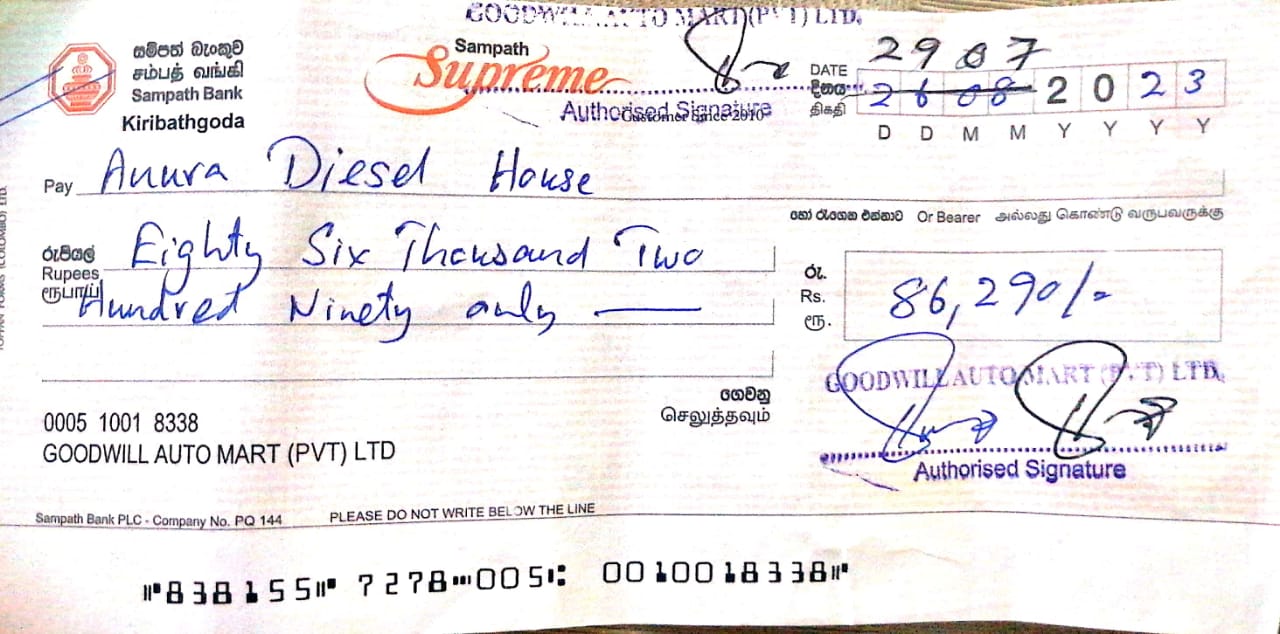 GOODWILL AUTO MART (PVT) LTD.
සම්පත් බැංකුව
சம்பத் வங்கி
Sampath Bank
Kiribathgoda
Sampath
Supreme
Authorised Signature
Customer since 2010
29 07
DATE
දිනය
திகதி
26 08 2 0 2 3
D D M M Y Y Y Y
Pay Anura Diesel House
හෝ රැගෙන එන්නාට Or Bearer அல்லது கொண்டு வருபவருக்கு
රුපියල්
Rupees
ரூபாய்
Eighty Six Thousand Two
Hundred Ninety only
රු.
Rs.
ரூ.
86,290/-
GOODWILL AUTO MART (PVT) LTD.
ගෙවනු
செலுத்தவும்
0005 1001 8338
GOODWILL AUTO MART (PVT) LTD
Authorised Signature
Sampath Bank PLC - Company No. PQ 144
PLEASE DO NOT WRITE BELOW THE LINE
⑈838155⑈ 7278⑉005⑆ 0010018338⑈